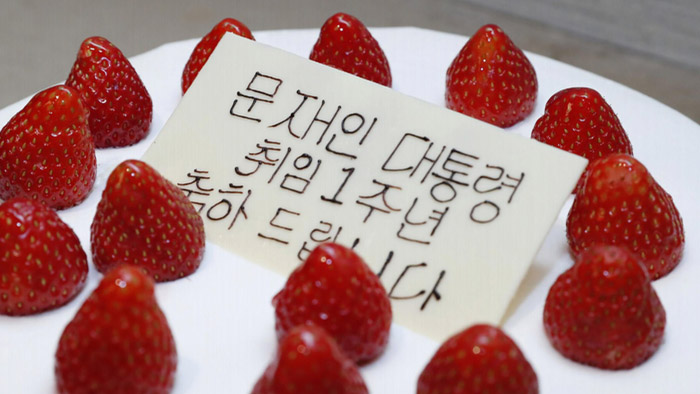 문재인 대통령
취임 1주년
축하 드립니다